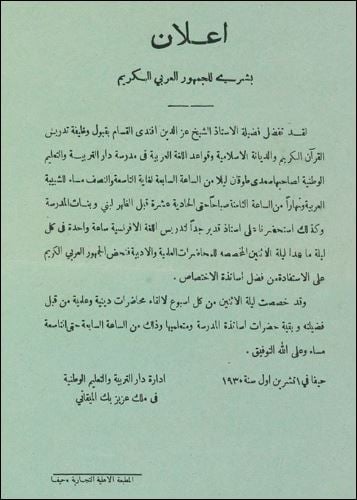 اعلان
بشرى للجمهور العربي الكريم
لقد تفضل فضيلة الاستاذ الشيخ عز الدين افندي القسام بقبول وظيفة تدريس
القرآن الكريم والديانة الاسلامية وقواعد اللغة العربية في مدرسة دار التربية والتعليم
الوطنية لصاحبها سعدي طوقان ليلا من الساعة السابعة لغاية التاسعة والنصف مساء للشبيبة
العربية ونهاراً من الساعة الثامنة صباحاً حتى الحادية عشرة قبل الظهر لبني وبنات المدرسة
وكذلك استحضرنا على استاذ قدير جداً لتدريس اللغة الافرنسية ساعة واحدة في كل
ليلة ما عدا ليلة الاثنين المخصصه للمحاضرات العلمية والادبية فنحض الجمهور العربي الكريم
على الاستفادة من فضل أساتذة الاختصاص .
وقد خصصت ليلة الاثنين من كل اسبوع لالقاء محاضرات دينية وعلمية من قبل
فضيلته و بقية حضرات أساتذة المدرسة ومتعلميها وذلك من الساعة السابعة حتى التاسعة
مساء وعلى الله التوفيق .
حيفا في ١ تشرين اول سنة ١٩٣٠
ادارة دار التربية والتعليم الوطنية
في ملك عزيز بك الميقاتي
المطبعة الاهلية التجارية ـ حيفا